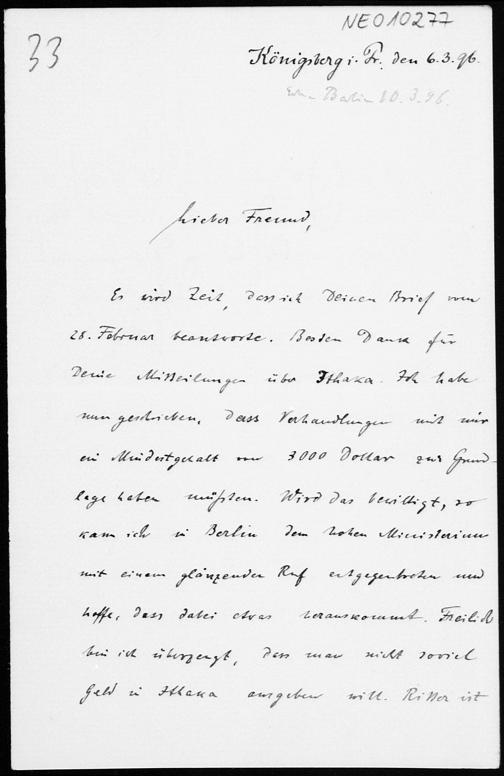 NEO10277
33
Königsberg i. Pr. den 6.3.96.
Berlin 10.3.96.
Lieber Freund,
Es wird Zeit, dass ich Deinen Brief vom
28. Februar beantworte. Besten Dank für
Deine Mitteilungen über Ithaka. Ich habe
nun geschrieben, dass Verhandlungen mit mir
ein Mindestgehalt von 3000 Dollar zur Grund-
lage haben müßten. Wird das bewilligt, so
kann ich in Berlin dem hohen Ministerium
mit einem glänzenden Ruf entgegentreten und
hoffe, dass dabei etwas herauskommt. Freilich
bin ich überzeugt, dass man nicht soviel
Geld in Ithaka ausgeben will. Ritter ist